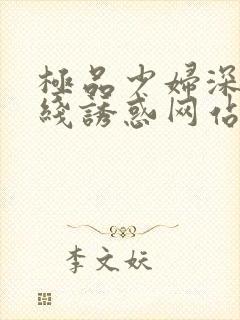 極品少婦深
綫誘惑网佔
李文妖